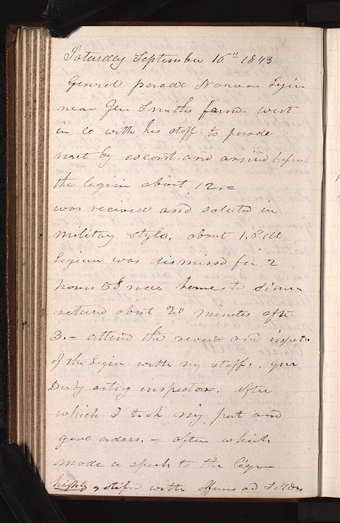 Saturday September 16th 1843
General parade Nauvoo Legion
near Gen Smiths farm. went
in Co with his staff to parade
met by escort and arrived before
the legion about 12,=
was received and saluted in
military style, about 1. P.M
Legion was dismissed for 2
hours & I rode home to dinner
return about 20 minutes after
3.- attend the review and
of the legion with my staff.
acting inspector. after
which I took my post and
gave orders. - after which
made a speech to the legion
highly with and